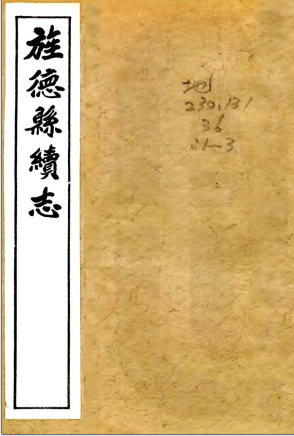 旌德縣續志
地
230.131
36
:1-3